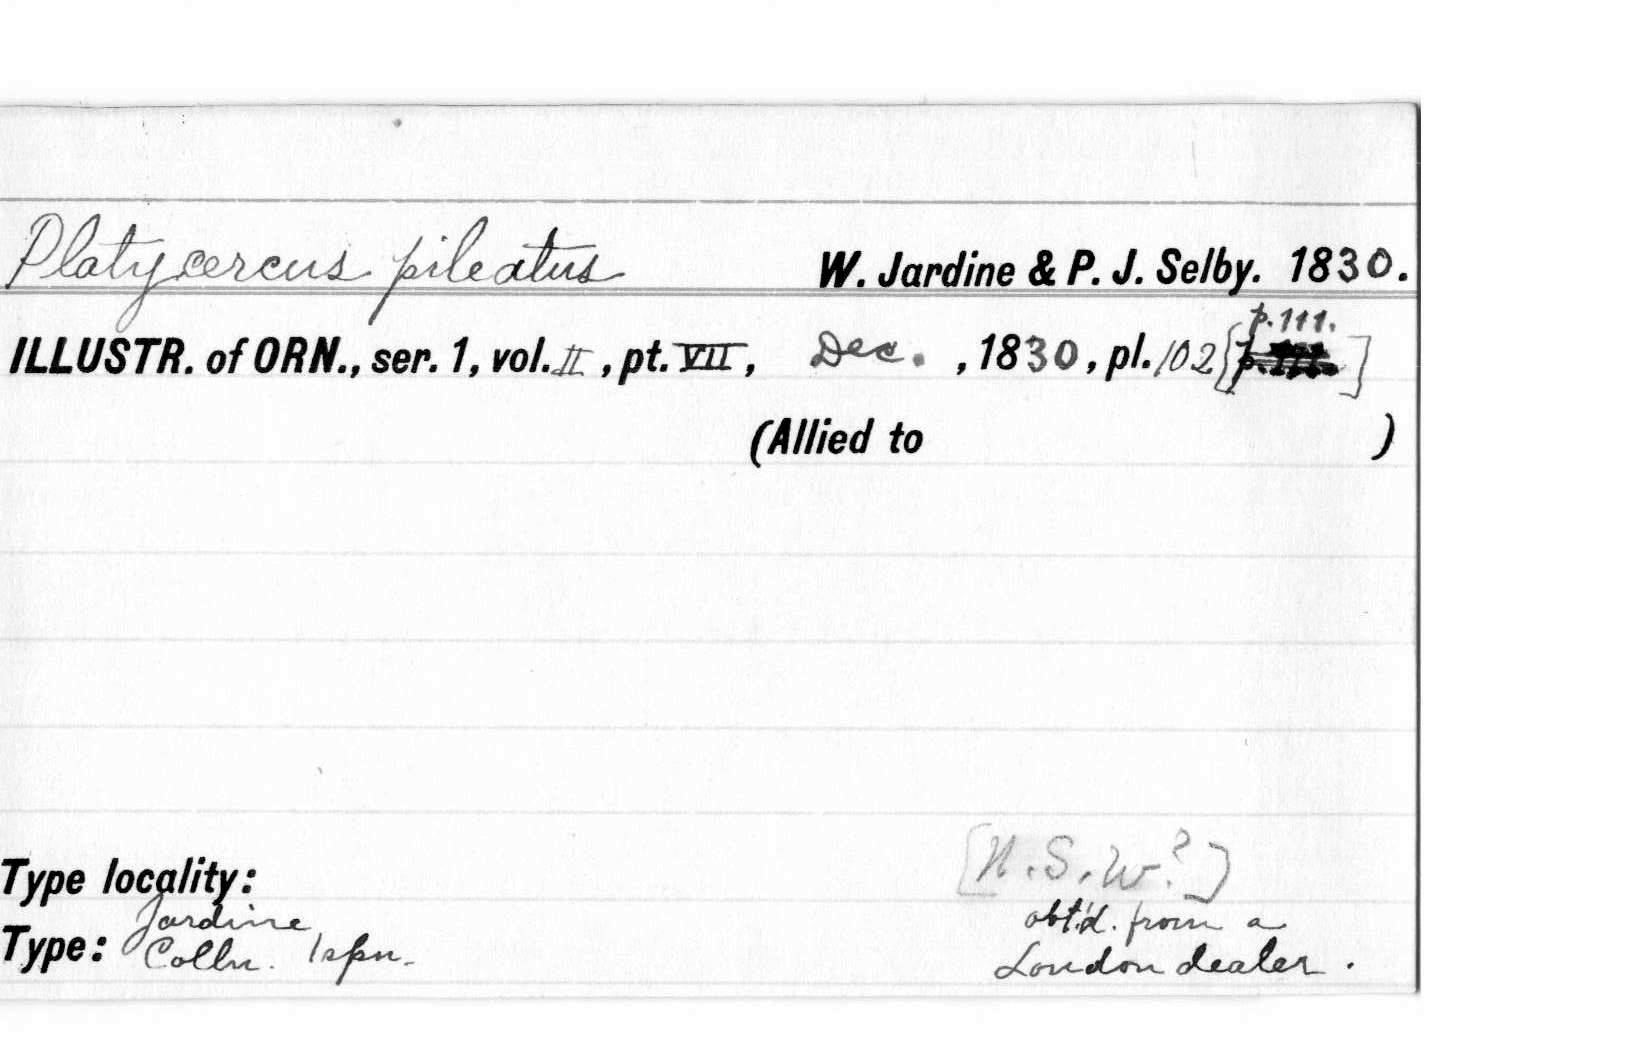 Platycercus pileatus W. Jardine & P. J. Selby. 1830.
p. 111.
ILLUSTR. of ORN., ser. 1, vol. II, pt. VII, Dec., 1830, pl. 102 [ ]
(Allied to )
Type locality: [N.S.W.?]
Jardine obt'd. from a
Type: Colln. 1 spn. London dealer.